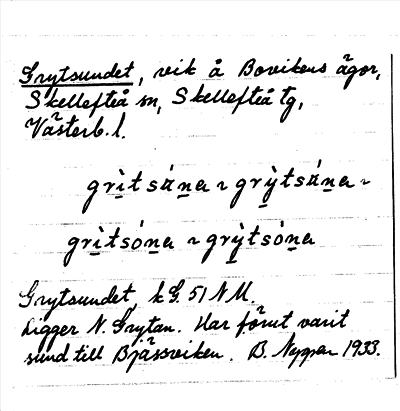 Grytsundet, vik å Bovikens ägor,
Skellefteå sn, Skellefteå tg,
Västerb. l.
gri̱tsúṉa ~ grỳ̱tsúṉa ~
grì̱tsóṉa ~ grỳ̱tsóṉa
Grytsundet, k G. 51 N M.
Ligger N. Grytan. Har förut varit
sund till Bjässviken. B. 1933.